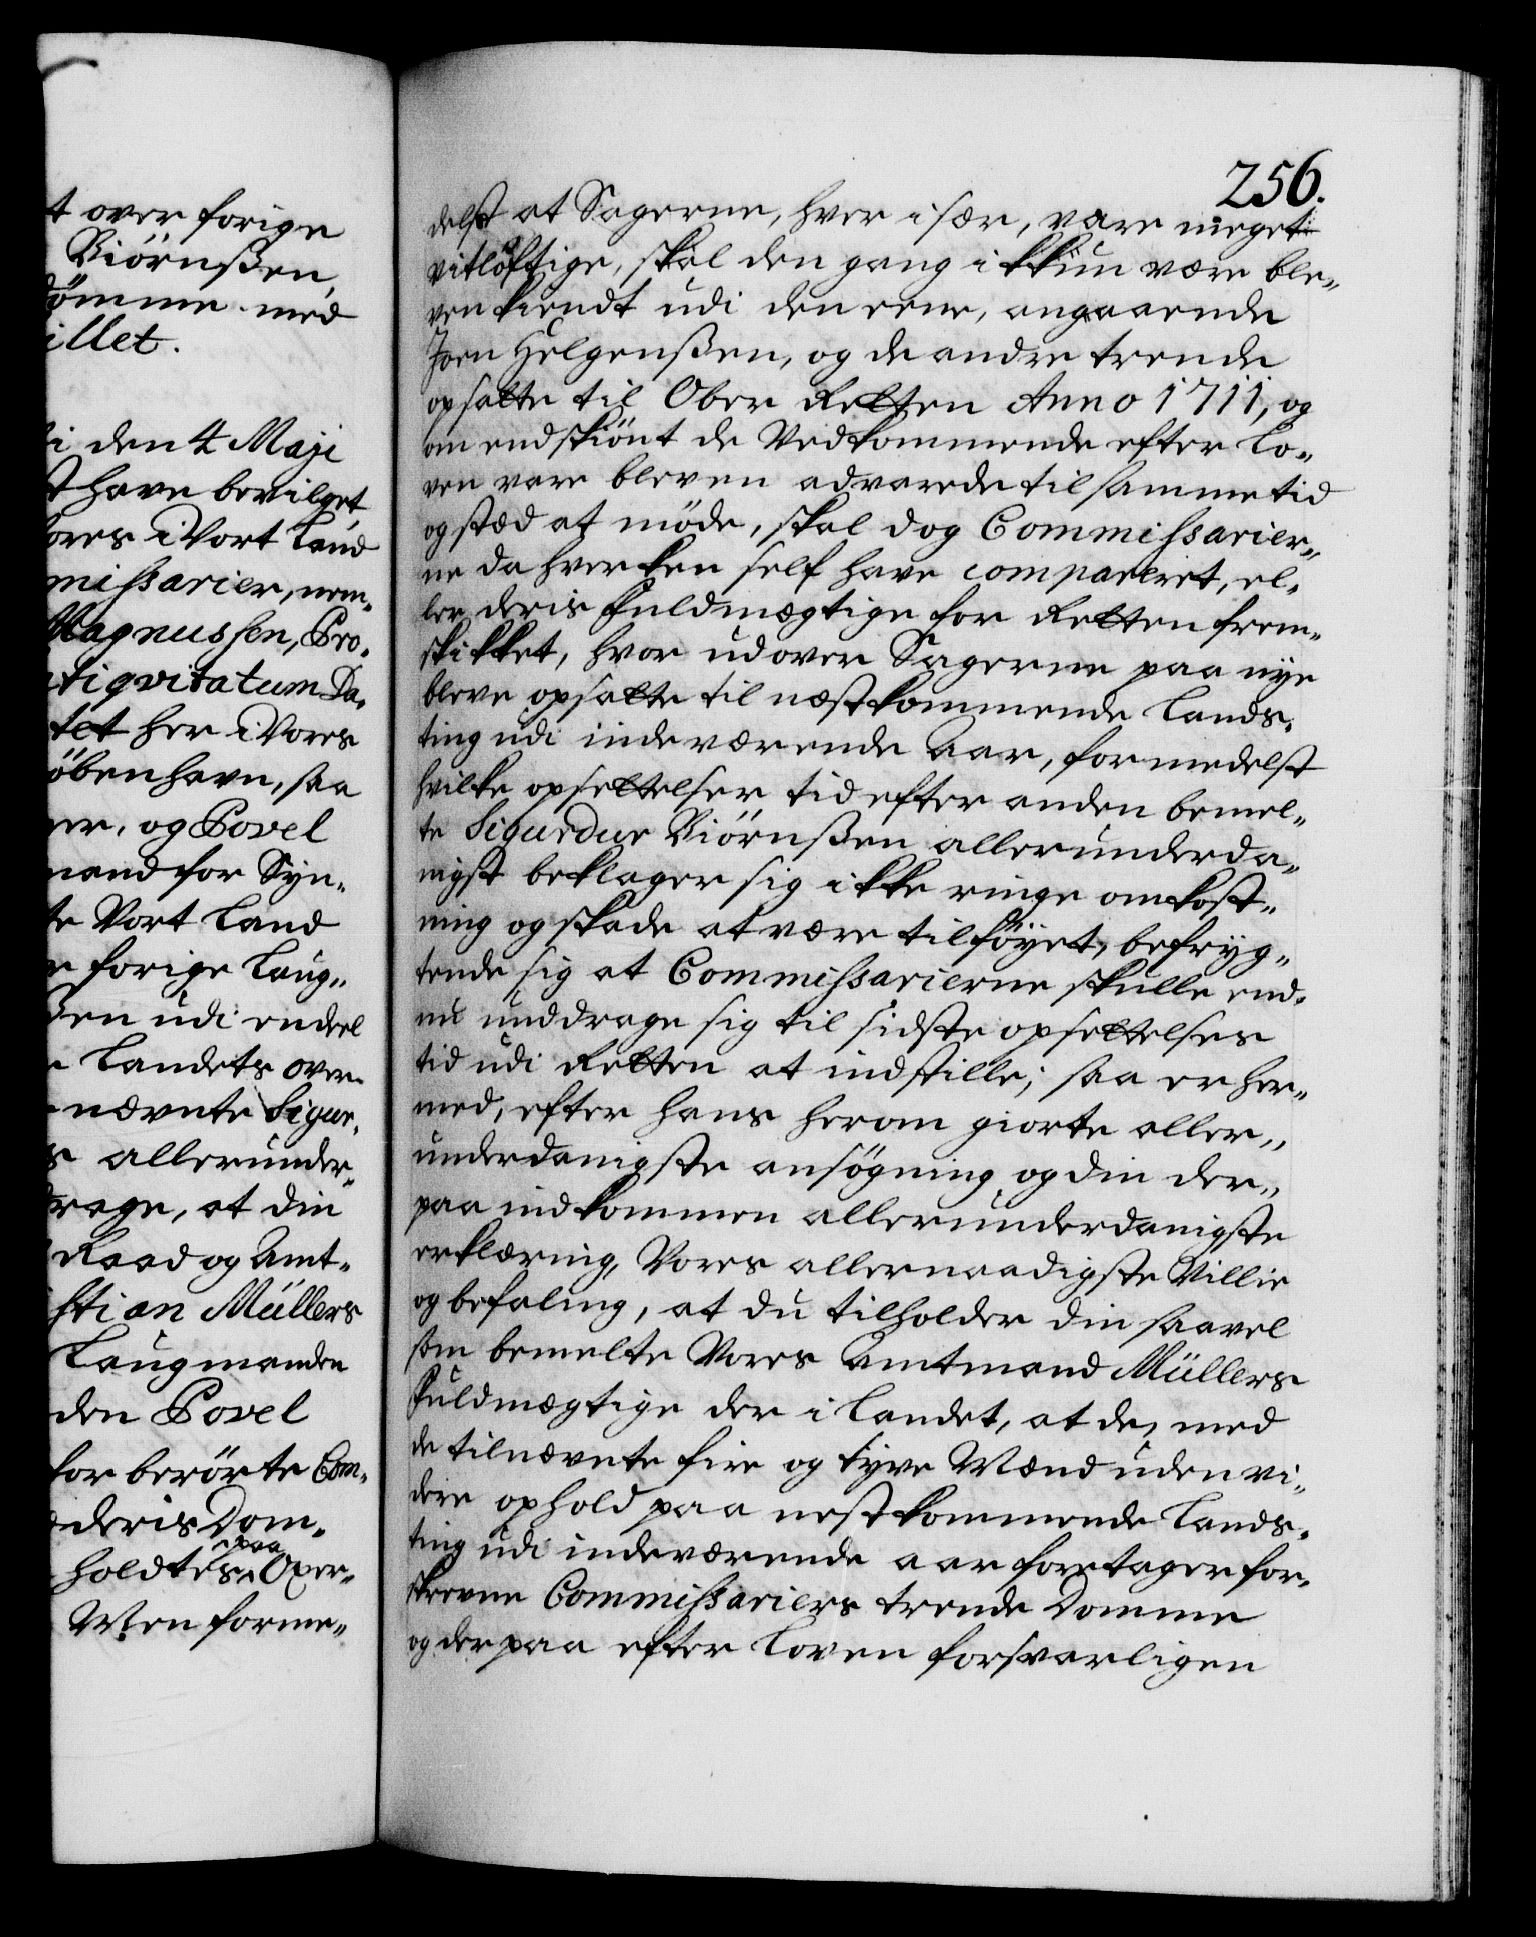 t over forige
Biörnßen,
dömme med
illet.
i den 4 Maji
t have bevilget
ores i Vort Land
missarier, nem„
Magnussen, Pro„
tiqvitatum Da„
tet her i Vores
öbenhavn, saa
er, og Povel
mand for Syn„
te Vort Land
e forige Laug„
ßen udi endeel
e Landets over„
nævnte Sigur„
s allerunder„
drage, at din
Raad og Amt„
stian Müllers
Laugmanden
den Povel
for berörte Com„
deris Dom„
paa
holdtes Over„
Men forme„
256.
delst at Sagerne, hver i sær, vare meget
vitlöftige, skal den gang ikkun være ble„
ven kiendt udi den eene, angaaende
Joen Helgenßen, og de andre trende
opsatte til Ober Retten Anno 1711, og
om endskiönt de Vedkommende efter Lo„
ven vare bleven advarede til samme tid
og stæd at möde, skal dog Commissarier„
ne da hverken self have compareret, el„
ler deris Fuldmægtige for Retten frem„
skikket, hvor udover Sagerne paa nye
bleve opsatte til næstkommende Lands„
ting udi indeværende Aar, formedelst
hvilke opsettelser tid efter anden bemel„
te Sigurdur Biörnßen allerunderda„
nigst beklager sig ikke ringe omkost„
ning og skade at være tilföyet, befryg„
tende sig at Commissarierne skulle end„
nu unddrage sig til sidste opsettelses
tid udi Retten at indstille; saa er her„
med, efter hans herom giorte aller„
underdanigste ansögning og din der„
paa indkommen allerunderdanigste
erklæring, Vores allernaadigste Villie
og befaling, at du tilholder din saavel
som bemelte Vores Amtmand Müllers
Fuldmægtige der i Landet, at de, med
de tilnævnte fire og tyve Mænd uden vi„
dere ophold paa nestkommende Lands„
ting udi indeværende aar foretager for„
skrevne Commissariers trende Domme
og derpaa efter Loven forsvarligen